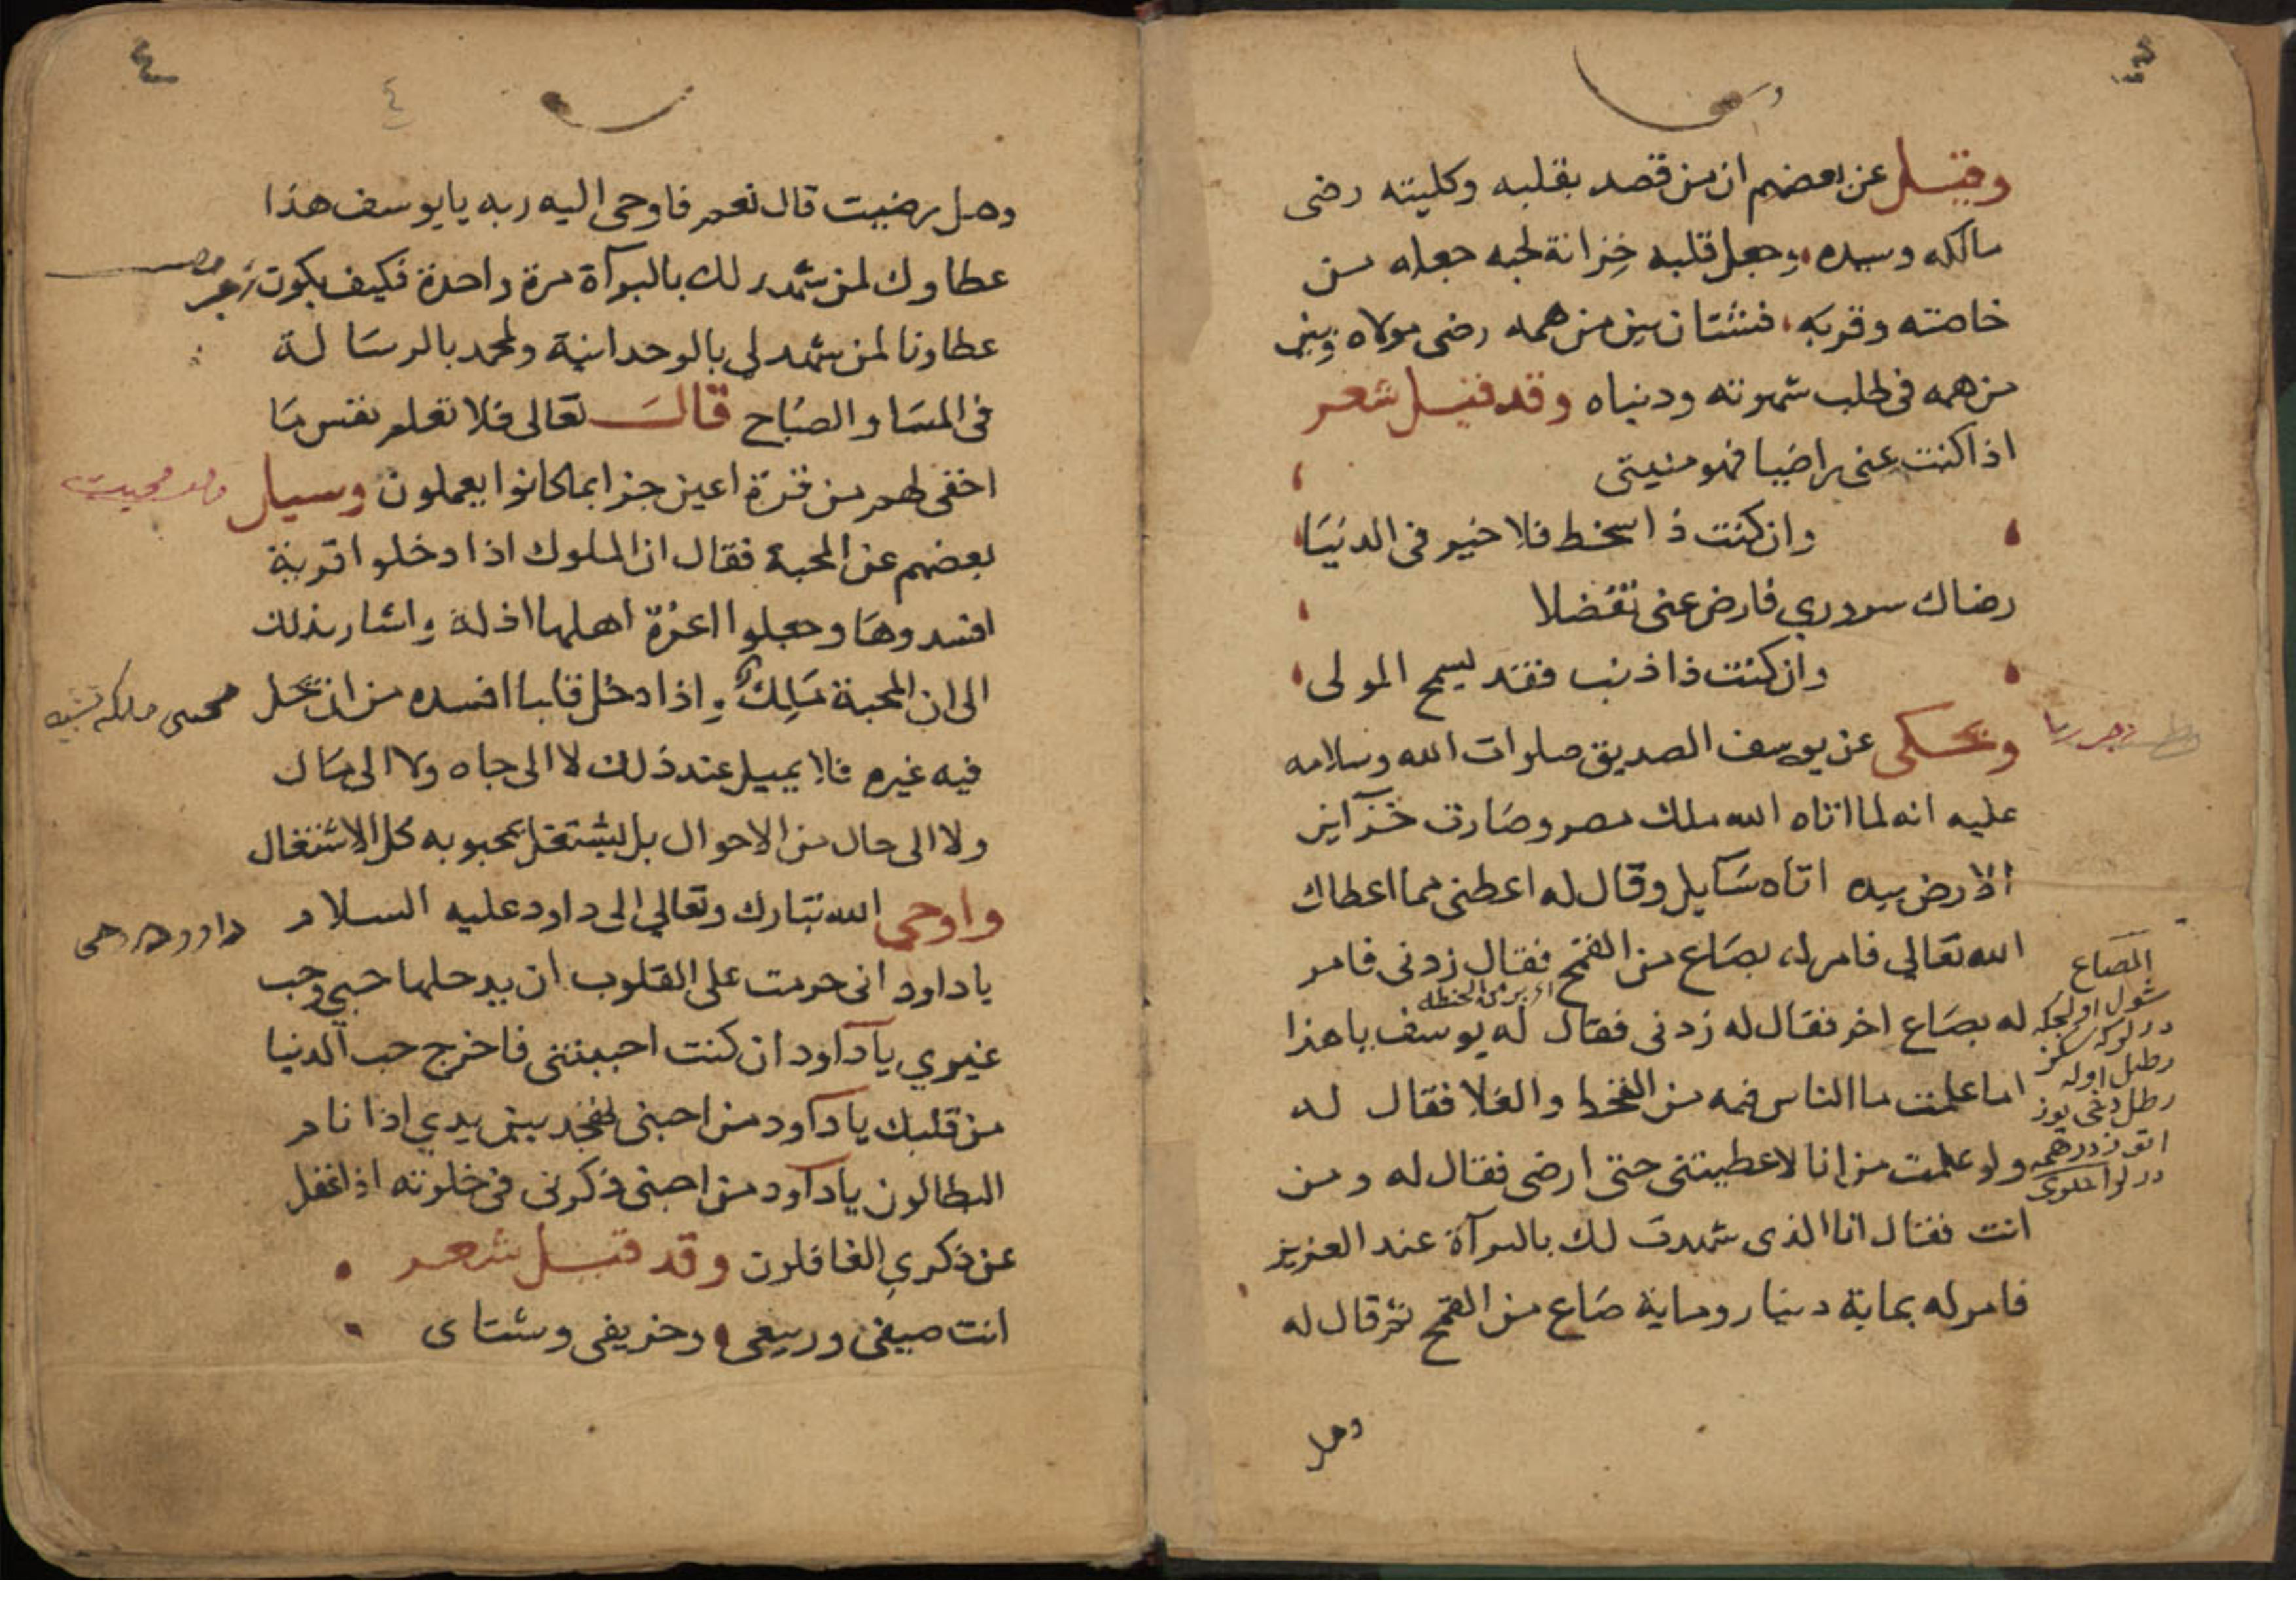 وقيل عن بعضهم ان من قصد بقلبه وكليته رضى
مالكه وسيده وجعل قلبه خزانة لحبه جعله من
خاصته وقربه فشتان بين من همه رضى مولاه وبين
من همه فى طلب شهوته ودنياه وقد قيل شعر
اذا كنت عنى راضيا فهو منيتى
وان كنت ذا سخط فلا خير فى الدنيا
رضاك سروري فارض عنى تفضلا
وان كنت ذا ذنب فقد يسمح المولى
ويحكى عن يوسف الصديق صلوات الله وسلامه
عليه انه لما اتاه الله ملك مصر وصارت خزاين
الارض بيده اتاه سايل وقال له اعطنى مما اعطاك
الله تعالي فامر له بصاع من القمح فقال زدنى فامر
له بصاع اخر فقال له زدنى فقال له يوسف يا هذا
اما علمت ما الناس فيه من القحط والغلا فقال له
ولو علمت من انا لاعطيتنى حتى ارضى فقال له ومن
انت فقال انا الذى شهدت لك بالبرآة عند العزيز
فامر له بماية دينار وماية صاع من القمح ثم قال له
وهل
الصاع
رطل اوله
٤
٤
وهل رضيت قال نعم فاوحى اليه ربه يا يوسف هذا
عطاوك لمن شهد لك بالبرآة مرة واحدة فكيف يكون
عطاونا لمن شهد لي بالوحدانية ولمحمد بالرسالة
فى المسا والصباح قال تعالى فلا تعلم نفس ما
اخفى لهم من قرة اعين جزا بما كانوا يعملون وسيل
بعضهم عن المحبة فقال ان الملوك اذا دخلوا قرية
افسدوها وجعلوا اعزة اهلها اذلة واشار بذلك
الى ان المحبة ملك واذا دخل قلبا افسده من ان يحل
فيه غيره فلا يميل عند ذلك لا الى جاه ولا الى مال
ولا الى حال من الاحوال بل يشتغل بمحبوبه كل الاشتغال
واوحى الله تبارك وتعالي الى داود عليه السلام
يا داود انى حرمت على القلوب ان يدخلها حبي وحب
غيري يا داود ان كنت احببتنى فاخرج حب الدنيا
من قلبك يا داود من احبنى تهجد بين يدي اذا نام
البطالون يا داود من احبنى ذكرنى فى خلوته اذا غفل
عن ذكري الغافلون وقد قيل شعر
انت صيفى وربيعى وخريفى وشتاى